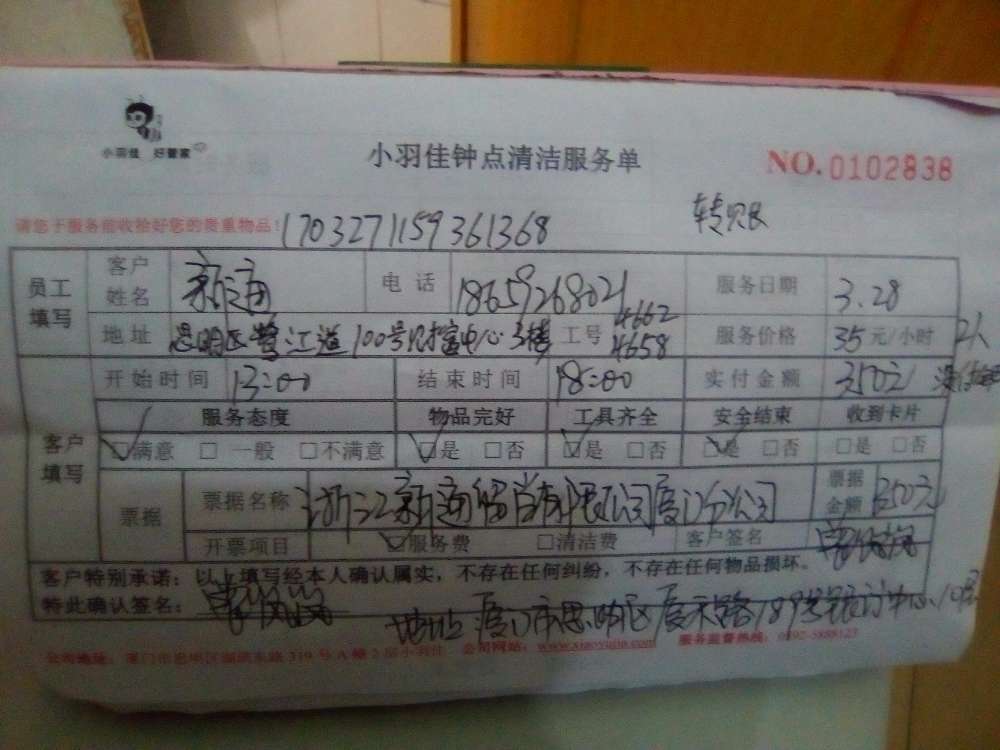 小羽佳 好管家
小羽佳钟点清洁服务单
NO.0102838
请您于服务前收拾好您的贵重物品!
1703271159361368
转账
员工填写
客户姓名 新通 电话 18659268021 服务日期 3.28
地址 思明区鹭江道100号财富中心3楼 工号 4662 4658 服务价格 35元/小时 2人
开始时间 13:00 结束时间 18:00 实付金额 350元
客户填写
服务态度 物品完好 工具齐全 安全结束 收到卡片
☑满意 □一般 □不满意 ☑是 □否 ☑是 □否 ☑是 □否 □是 □否
票据 票据名称 浙江新通留学有限公司厦门分公司 票据金额 350元
开票项目 ☑服务费 □清洁费 客户签名
客户特别承诺:以上填写经本人确认属实,不存在任何纠纷,不存在任何物品损坏。
特此确认签名:
地址 厦门市思明区厦禾路189号银行中心10楼
公司地址:厦门市思明区湖滨东路319号A幢2层小羽佳 公司网站:www.xiaoyujia.com 服务监督热线:0592-5888123